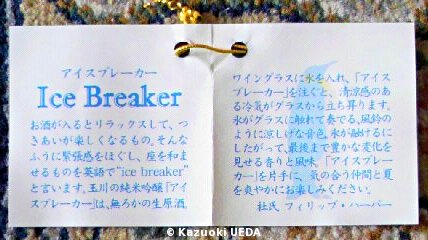 アイスブレーカー
Ice Breaker
お酒が入るとリラックスして、つ
きあいが楽しくなるもの。そんな
ふうに緊張感をほぐし、座を和ま
せるものを英語で“ice breaker”
と言います。玉川の純米吟醸「アイ
スブレーカー」は、無ろかの生原酒。
ワイングラスに氷を入れ、「アイス
ブレーカー」を注ぐと、清涼感のあ
る冷気がグラスから立ち昇ります。
氷がグラスに触れて奏でる、風鈴の
ように涼しげな音色。氷が融けるに
したがって、最後まで豊かな変化を
見せる香りと風味。「アイスブレー
カー」を片手に、気の合う仲間と夏
を爽やかにお楽しみください。
杜氏 フィリップ・ハーパー
© Kazuoki UEDA